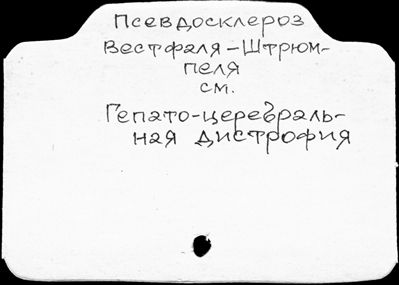 Псевдосклероз
Вестфаля-Штрюм-
пеля
см.
Гепато-церебраль-
ная дистрофия